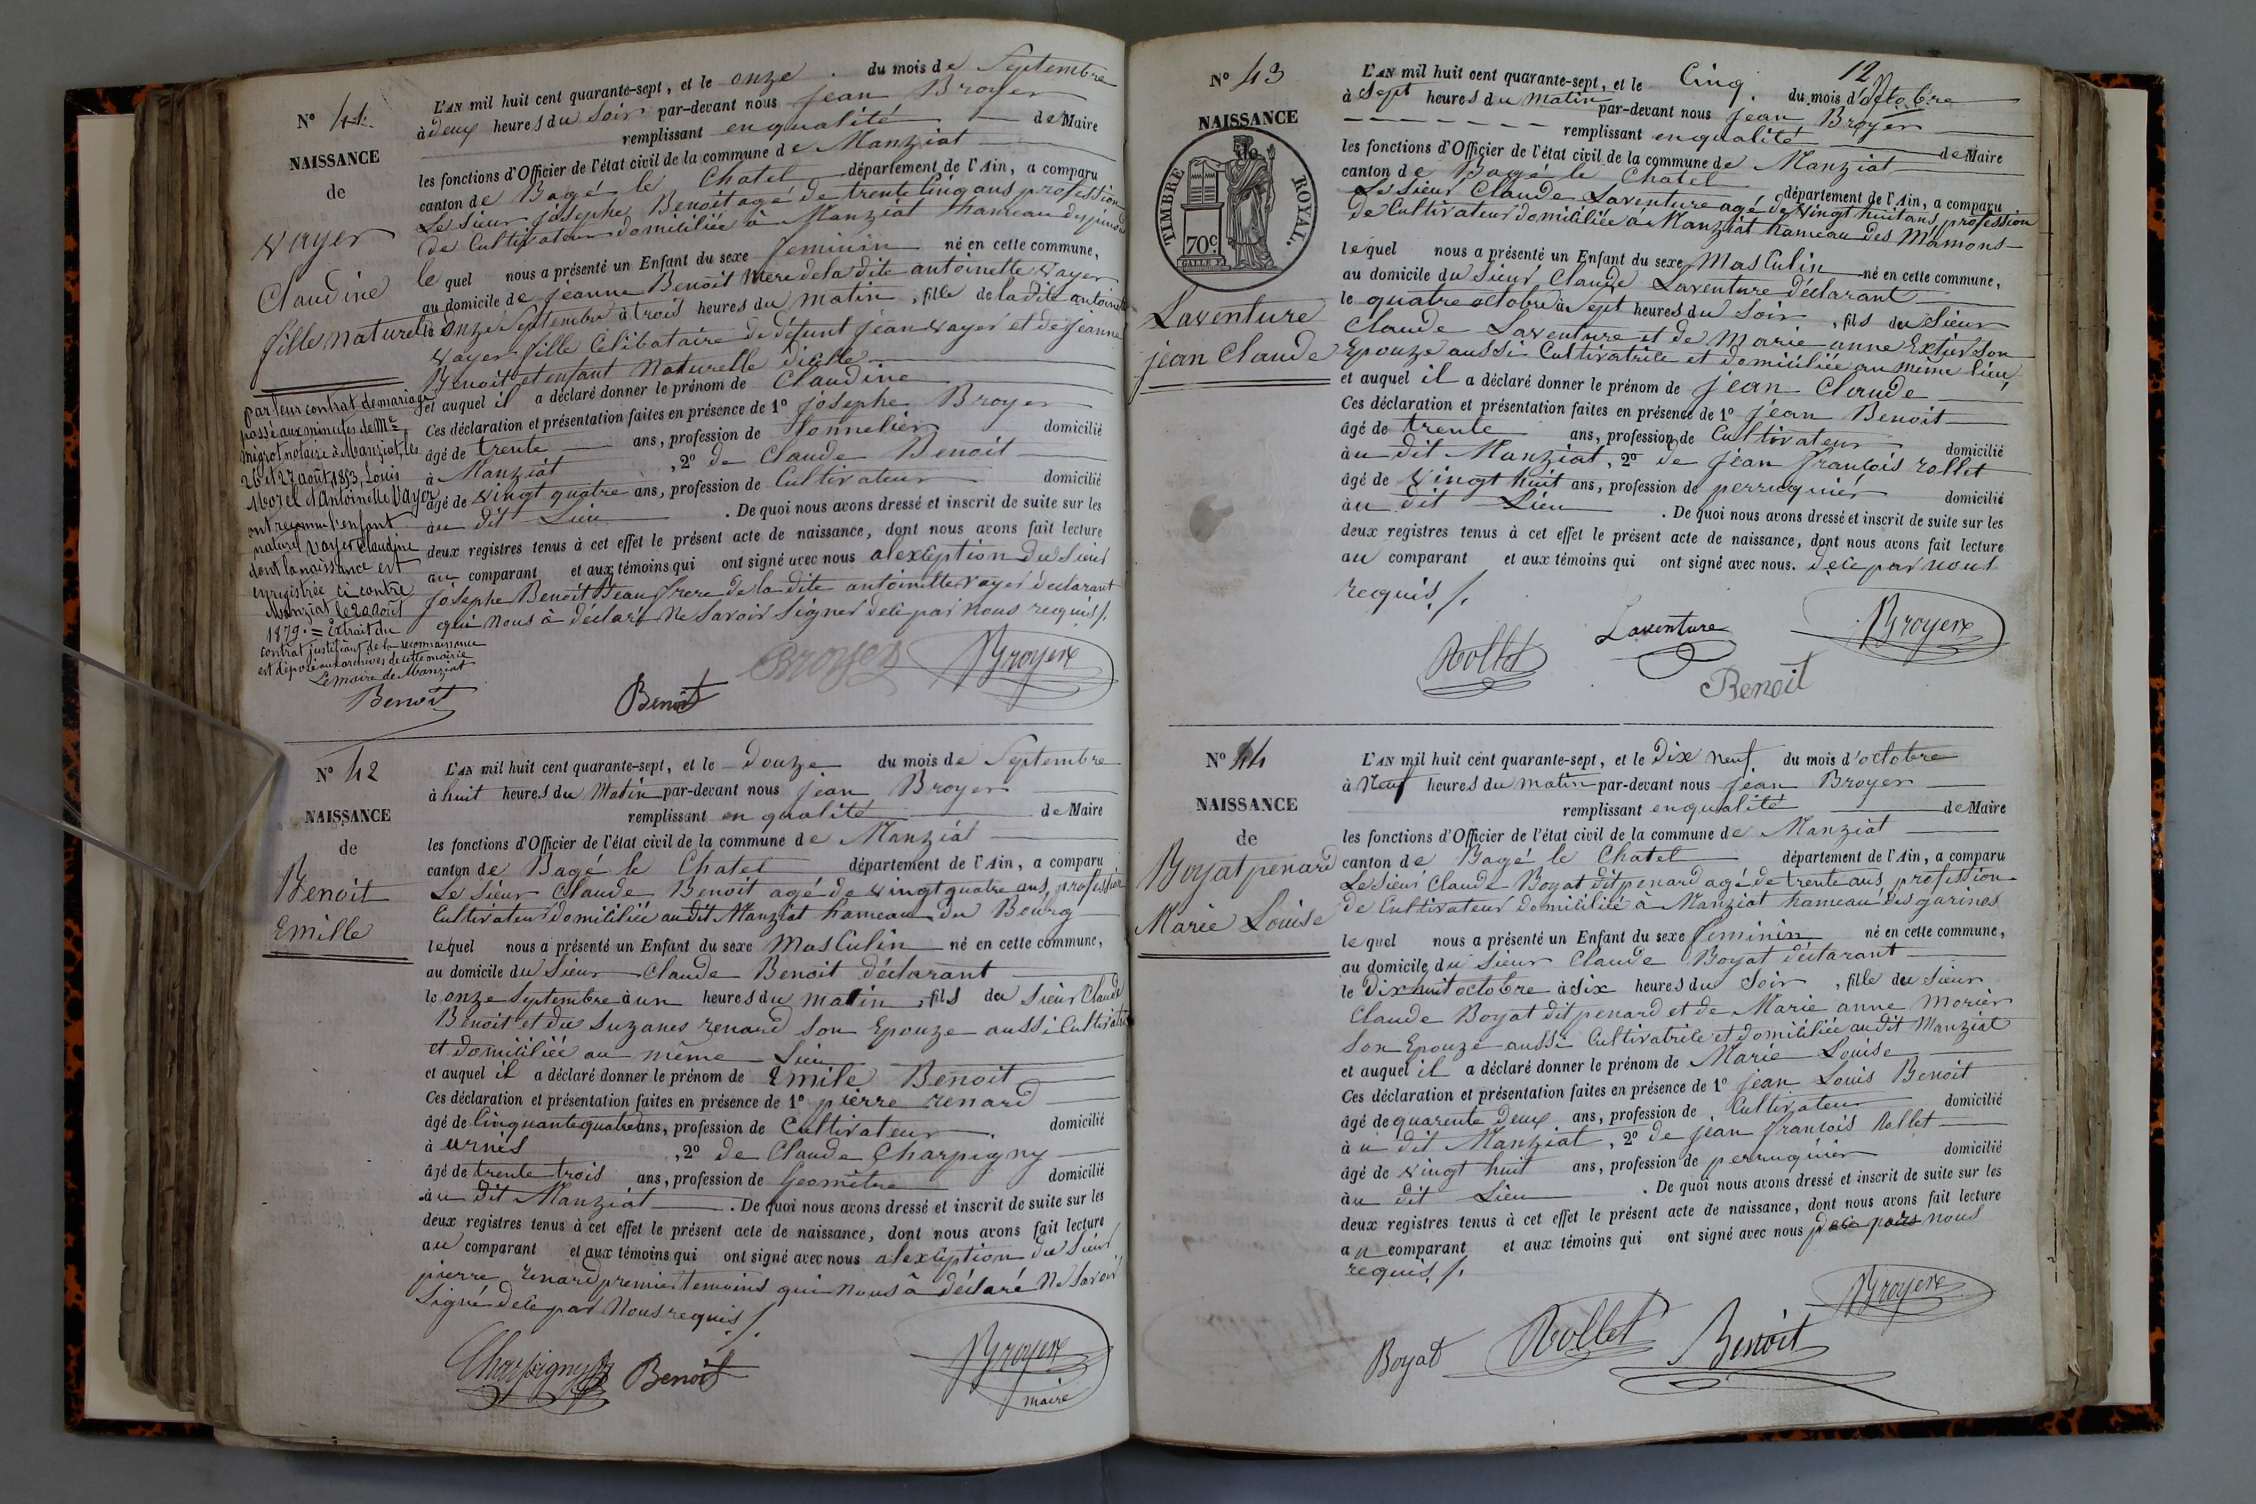 N° 41
NAISSANCE
de
Vayer
Claudine
fille naturelle
par leur contrat de mariage
passé aux minutes de Me
Migrot notaire à Manziat, les
26 et 27 août 1853, Louis
Morel et Antoinette Vayer
ont reconnu l'enfant
naturel Vayer Claudine
dont la naissance est
enregistrée ci contre
Manziat le 20 août
1879. = Extrait du
contrat justifiant de la reconnaissance
est déposé aux archives de cette mairie
Le maire de Manziat
Benoit
L'AN mil huit cent quarante-sept, et le onze du mois de Septembre
à deux heures du Soir par-devant nous jean Broyer
remplissant en qualité de Maire
les fonctions d'Officier de l'état civil de la commune de Manziat
canton de Bagé le Chatel département de l'Ain, a comparu
Le Sieur josephe Benoit agé de trente Cinq ans profession
de Cultivateur domiciliée à Manziat hameau
le quel nous a présenté un Enfant du sexe feminin né en cette commune,
au domicile de jeanne Benoit Mere de la dite antoinette Vayer
le onze Septembre à trois heures du matin, fille de la dite antoinette
Vayer fille Célibataire de défunt jean Vayer et de jeanne
Benoit et enfant Naturelle d'icelle
et auquel il a déclaré donner le prénom de Claudine
Ces déclaration et présentation faites en présence de 1° josephe Broyer
âgé de trente ans, profession de Tonnelier domicilié
à Manziat, 2° de Claude Benoit
âgé de Vingt quatre ans, profession de Cultivateur domicilié
àu dit Lieu. De quoi nous avons dressé et inscrit de suite sur les
deux registres tenus à cet effet le présent acte de naissance, dont nous avons fait lecture
au comparant et aux témoins qui ont signé avec nous alexeption du Sieur
josephe Benoit Beau frere de la dite antoinette Vayer declarant
qui nous à déclaré ne Savoir Signer dece par nous requis /.
Broyer
Broyer
Benoit
N° 42
NAISSANCE
de
Benoit
Emille
L'AN mil huit cent quarante-sept, et le Douze du mois de Septembre
à huit heures du Matin par-devant nous jean Broyer
remplissant en qualité de Maire
les fonctions d'Officier de l'état civil de la commune de Manziat
canton de Bagé le Chatel département de l'Ain, a comparu
Le Sieur Claude Benoit agé de vingt quatre ans, profession
Cultivateur domiciliée au dit Manziat hameau du Bourg
lequel nous a présenté un Enfant du sexe Masculin né en cette commune,
au domicile du Sieur Claude Benoit déclarant
le onze Septembre à un heures du matin, fils deu Sieur Claude
Benoit et du Suzanes renard Son Epouze aussi Cultivatrice
et domiciliée au même Lieu
et auquel il a déclaré donner le prénom de Emile Benoit
Ces déclaration et présentation faites en présence de 1° pierre renard
âgé de Cinquante quatre ans, profession de Cultivateur domicilié
à urnés, 2° de Claude Charpigny
âgé de trente trois ans, profession de Géomètre domicilié
àu dit Manziat. De quoi nous avons dressé et inscrit de suite sur les
deux registres tenus à cet effet le présent acte de naissance, dont nous avons fait lecture
au comparant et aux témoins qui ont signé avec nous alexeption du Sieur
pierre renard premier temoins qui nous à déclaré Ne Savoir
Signé dece par Nous requis /.
Charpigny Benoit Broyer
maire
12
N° 43
NAISSANCE
de
TIMBRE ROYAL.
70c.
Laventure
jean Claude
L'AN mil huit cent quarante-sept, et le Cinq du mois d'octobre
à Sept heures du matin par-devant nous jean Broyer
remplissant en qualité de Maire
les fonctions d'Officier de l'état civil de la commune de Manziat
canton de Bagé le Chatel département de l'Ain, a comparu
Le Sieur Claude Laventure agé de Vingt huit ans profession
de Cultivateur domiciliée à Manziat hameau des Mamons
lequel nous a présenté un Enfant du sexe Masculin né en cette commune,
au domicile du Sieur Claude Laventure déclarant
le quatre octobre à Sept heures du Soir, fils deu Sieur
Claude Laventure et de Marie anne Extier Son
Epouze aussi Cultivatrice et domiciliée au même lieu
et auquel il a déclaré donner le prénom de jean Claude
Ces déclaration et présentation faites en présence de 1° jean Benoit
âgé de trente ans, profession de Cultivateur domicilié
àu dit Manziat, 2° de jean francois rollet
âgé de Vingt huit ans, profession de perruquiér domicilié
àu dit Lieu. De quoi nous avons dressé et inscrit de suite sur les
deux registres tenus à cet effet le présent acte de naissance, dont nous avons fait lecture
au comparant et aux témoins qui ont signé avec nous. dece par nous
requis /.
Rollet Laventure Broyer
Benoit
N° 44
NAISSANCE
de
Boyat penard
Marie Louise
L'AN mil huit cent quarante-sept, et le Dix neuf du mois d'octobre
à Neuf heures du matin par-devant nous jean Broyer
remplissant en qualité de Maire
les fonctions d'Officier de l'état civil de la commune de Manziat
canton de Bagé le Chatel département de l'Ain, a comparu
Le Sieur Claude Boyat dit penard agé de trente ans, profession
de Cultivateur domiciliée à Manziat hameau des garines
lequel nous a présenté un Enfant du sexe feminin né en cette commune,
au domicile du Sieur Claude Boyat déclarant
le Dix huit octobre à Six heures du Soir, fille deu Sieur
Claude Boyat dit penard et de Marie anne Morier
Son Epouze aussi Cultivatrice et domiciliée au dit Manziat
et auquel il a déclaré donner le prénom de Marie Louise
Ces déclaration et présentation faites en présence de 1° jean Louis Benoit
âgé de quarente deux ans, profession de Cultivateur domicilié
à u dit Manziat, 2° de jean francois Rollet
âgé de Vingt huit ans, profession de perruquiér domicilié
àu dit Lieu. De quoi nous avons dressé et inscrit de suite sur les
deux registres tenus à cet effet le présent acte de naissance, dont nous avons fait lecture
au comparant et aux témoins qui ont signé avec nous dece par nous
requis /.
Broyer
Boyat Rollet Benoit